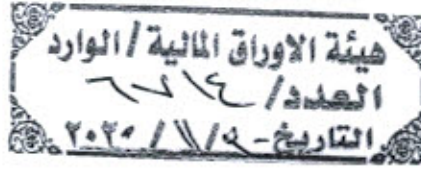 هيئة الاوراق المالية / الوارد
العدد /
التاريخ - / ١١ / ٢٠٢٥